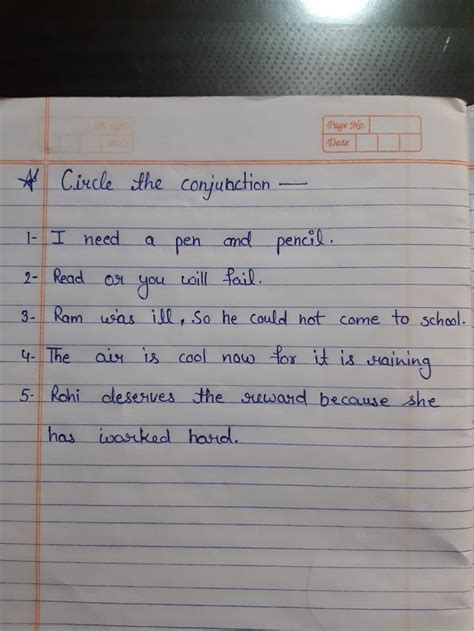 Page No.
Date
Circle the conjunction —
1- I need a pen and pencil.
2- Read or you will fail.
3- Ram was ill, So he could not come to school.
4- The air is cool now for it is raining
5- Rohi deserves the reward because she
has worked hard.